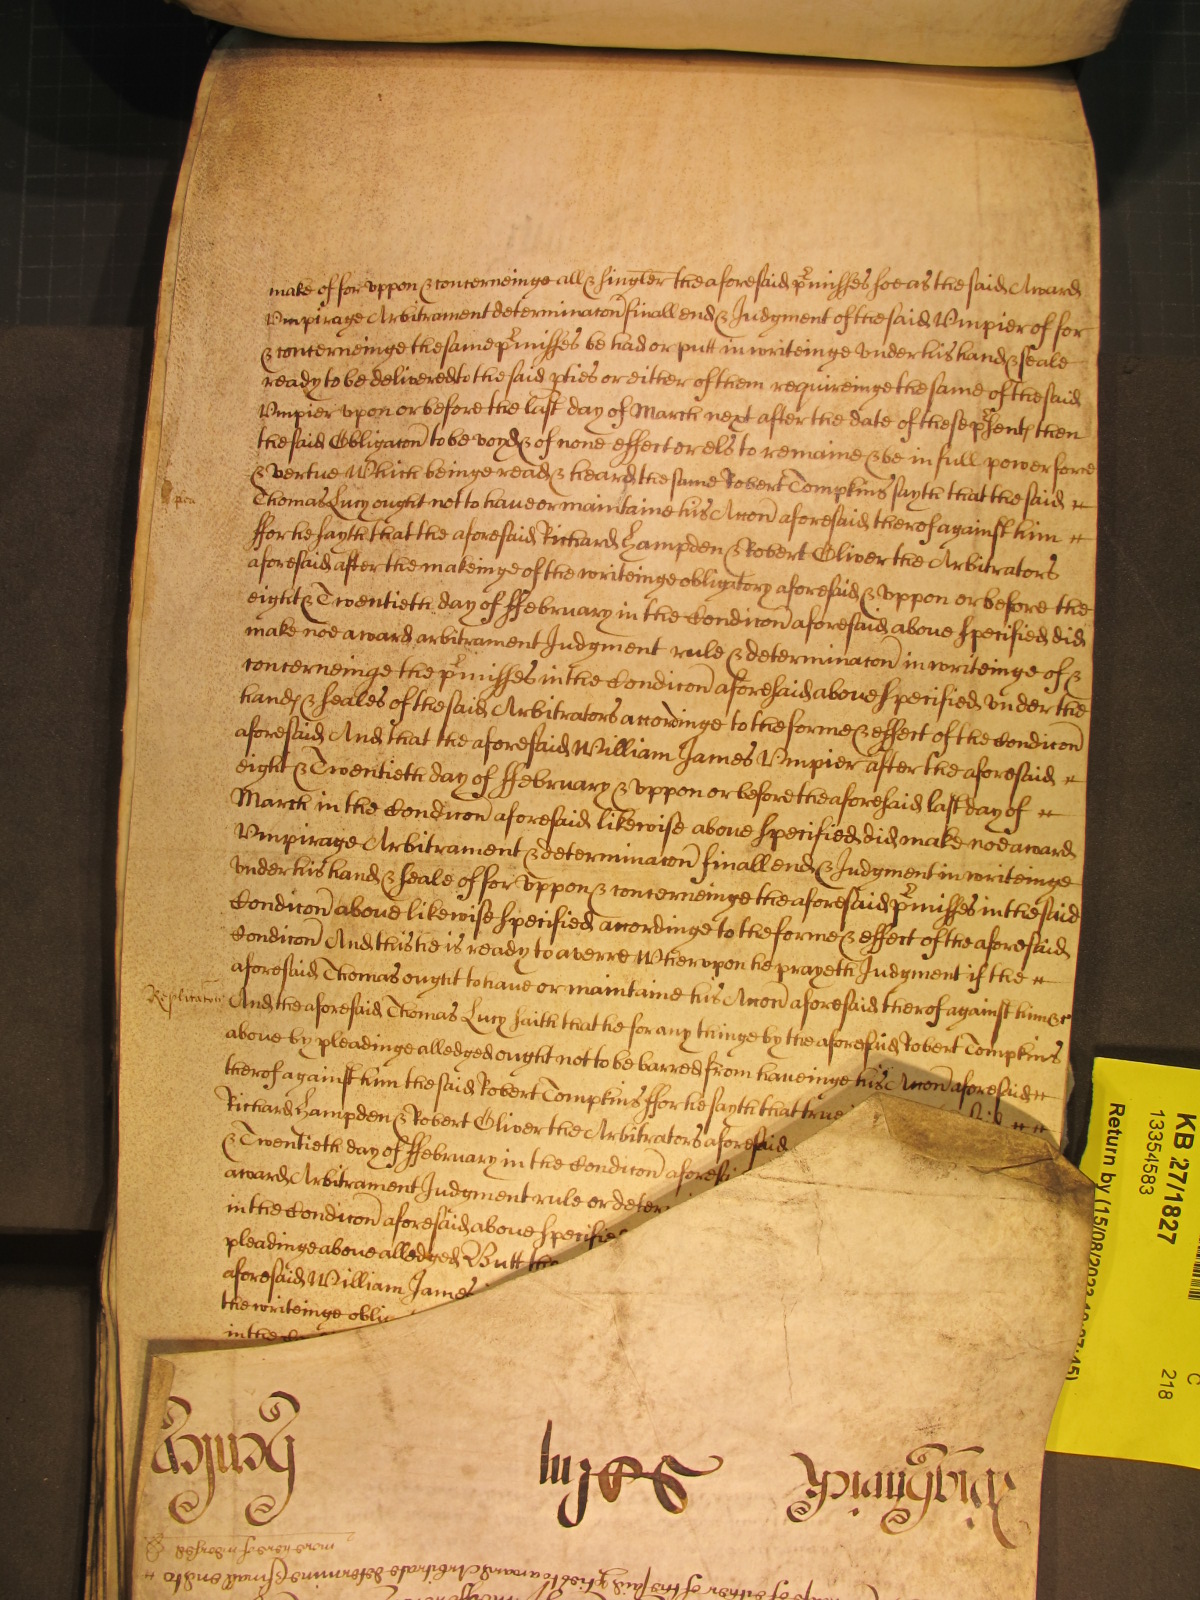 make of for vppon & concerneinge all & singler the aforesaid p̱rmisses soe as the said Award
Vmpirage Arbitrament determinacon finall end & Judgment of the said Vmpier of for
& concerneinge the same p̱rmisses be had or putt in writeinge vnder his hand & seale
ready to be delivered to the said p̱ties or either of them requireinge the same of the said
Vmpier vpon or before the last day of March next after the date of these p̱rsents then
the said Obligacon to be voyd & of none effect or els to remaine & be in full power force
& vertue Which beinge read & heard the same Robert Tompkins sayth that the said
Thomas Lucy ought not to haue or maintaine his Accon aforesaid therof against him
ffor he sayth that the aforesaid Richard Hampden & Robert Oliver the Arbitrators
aforesaid after the makeinge of the writeinge obligatory aforesaid & vppon or before the
eight & Twentieth day of ffebruary in the Condicon aforesaid aboue specified did
make noe award arbitrament Judgment rule & determinacon in writeinge of &
concerneinge the p̱rmisses in the Condicon aforesaid aboue specified vnder the
hands & seales of the said Arbitrators accordinge to the forme & effect of the Condicon
aforesaid And that the aforesaid William James Vmpier after the aforesaid
eight & Twentieth day of ffebruary & vppon or before the aforesaid last day of
March in the Condicon aforesaid likewise aboue specified did make noe award
Vmpirage Arbitrament & determinacon finall end & Judgment in writeinge
vnder his hand & seale of for vppon & concerneinge the aforesaid p̱rmisses in the said
Condicon aboue likewise specified accordinge to the forme & effect of the aforesaid
Condicon And this he is ready to averre Whervpon he prayeth Judgment if the
aforesaid Thomas ought to haue or maintaine his Accon aforesaid therof against him &c
Replicacon And the aforesaid Thomas Lucy saith that he for any thinge by the aforesaid Robert Tompkins
aboue by pleadinge alledged ought not to be barred from haueinge his Accon aforesaid
therof against him the said Robert Tompkins ffor he sayth that true
Richard Hampden & Robert Oliver the Arbitrators aforesaid
& Twentieth day of ffebruary in the Condicon aforesai
award Arbitrament Judgment rule or deter
in the Condicon aforesaid aboue specifie
pleadinge aboue alledged Butt the
aforesaid William James
the writeinge obli
in the
KB 27/1827
13354583
Return by (15/08/2023
C
218